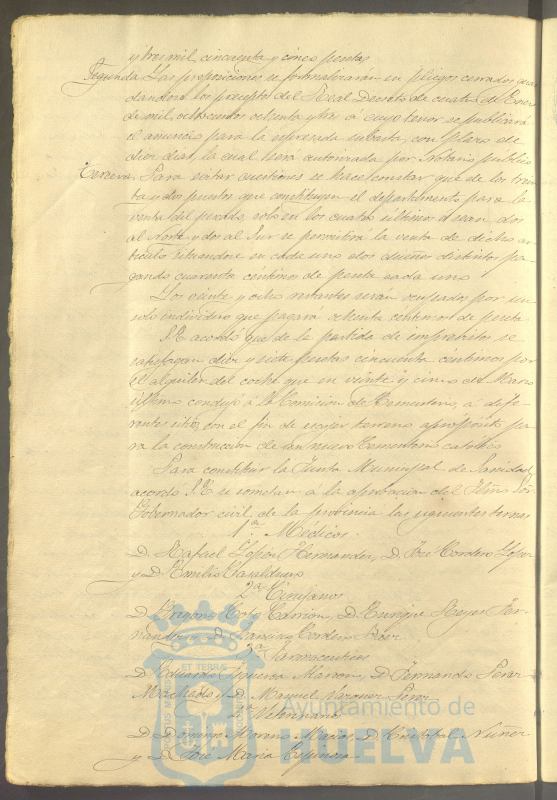 y tres mil, cincuenta y cinco pesetas
Segunda. Las proposiciones se formalizarán en pliegos cerrados guar
dandose los preceptos del Real Decreto de cuatro de Enero
de mil, ochocientos ochenta y tres a cuyo tenor se publicará
el anuncio para la referida subasta, con plazo de
diez dias, la cual será autorizada por Notario publico
Tercera. Para evitar cuestiones se hace constar que de los trein
ta y dos puestos que constituyen el departamento para la
venta del pescado, solo en los cuatro ultimos o sean, dos
al Norte y dos al Sur se permitirá la venta de dicho ar
ticulo situandose en cada uno dos dueños distintos pa
gando cuarenta céntimos de peseta cada uno
Los veinte y ocho restantes serán ocupados por un
solo individuo que pagará ochenta céntimos de peseta
S. E. acordó que de la partida de imprevistos se
satisfagan diez y siete pesetas cincuenta centimos por
el alquiler del coche que en veinte y cinco de Marzo
ultimo condujo á la Comision de Cementerio, a dife
rentes sitios con el fin de escojer terreno apropósito pa
ra la construccion de un nuevo Cementerio catolico
Para constituir la Junta Municipal de Sanidad
acordó S. E. se sometan á la aprobacion del Iltmo Sor
Gobernador civil de la provincia las siguientes ternas
1ª Médicos
D. Rafael Lopez Hernandez, D. José Cordero Lopez
y D. Emilio
2ª Cirujanos
D. Carrion, D. Enrique Reyes Fer
nandez y D. Cordero
3ª Farmaceuticos
D. Eduardo Figueroa D. Fernando Perez
Machado y D. Manuel Perez
4ª Veterinarios
D. Domingo Moreno D. Cristobal Nuñez
y D. José Maria Espinosa
ET TERRA
Ayuntamiento de
HUELVA